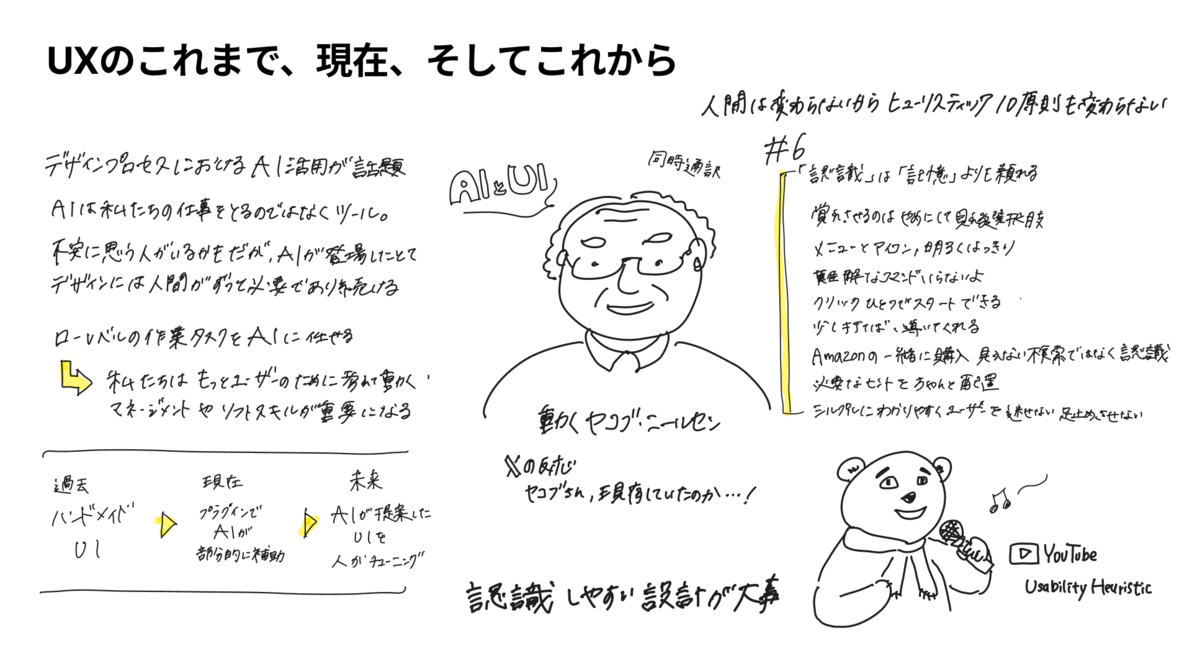 UXのこれまで、現在、そしてこれから
デザインプロセスにおけるAI活用が話題
AIは私たちの仕事をとるのではなくツール。
不安に思う人がいるかもだが、AIが登場したとて
デザインには人間がずっと必要であり続ける
ローレベルの作業タスクをAIに任せる
私たちはもっとユーザーのために考えて動かく
マネージメントやソフトスキルが重要になる
過去
ハンドメイド
UI
現在
プラグインで
AIが
部分的に補助
未来
AIが提案した
UIを
人がチューニング
AIとUI
同時通訳
動くヤコブ・ニールセン
Xの反応
ヤコブさん、現存していたのか…!
認識しやすい設計が大事
人間は変わらないからヒューリスティック10原則も変わらない
#6
「認識」は「記憶」よりも頼れる
覚えさせるのはやめにして見える後発
メニューとアイコン,明るくはっきり
難解なコマンドいらないよ
クリックひとつでスタートできる
少しすれば、導いてくれる
Amazonの一緒に購入 見えない検索ではなく認識
必要なヒントをちゃんと配置
シンプルにわかりやすくユーザーを迷せない足止めさせない
YouTube
Usability Heuristic